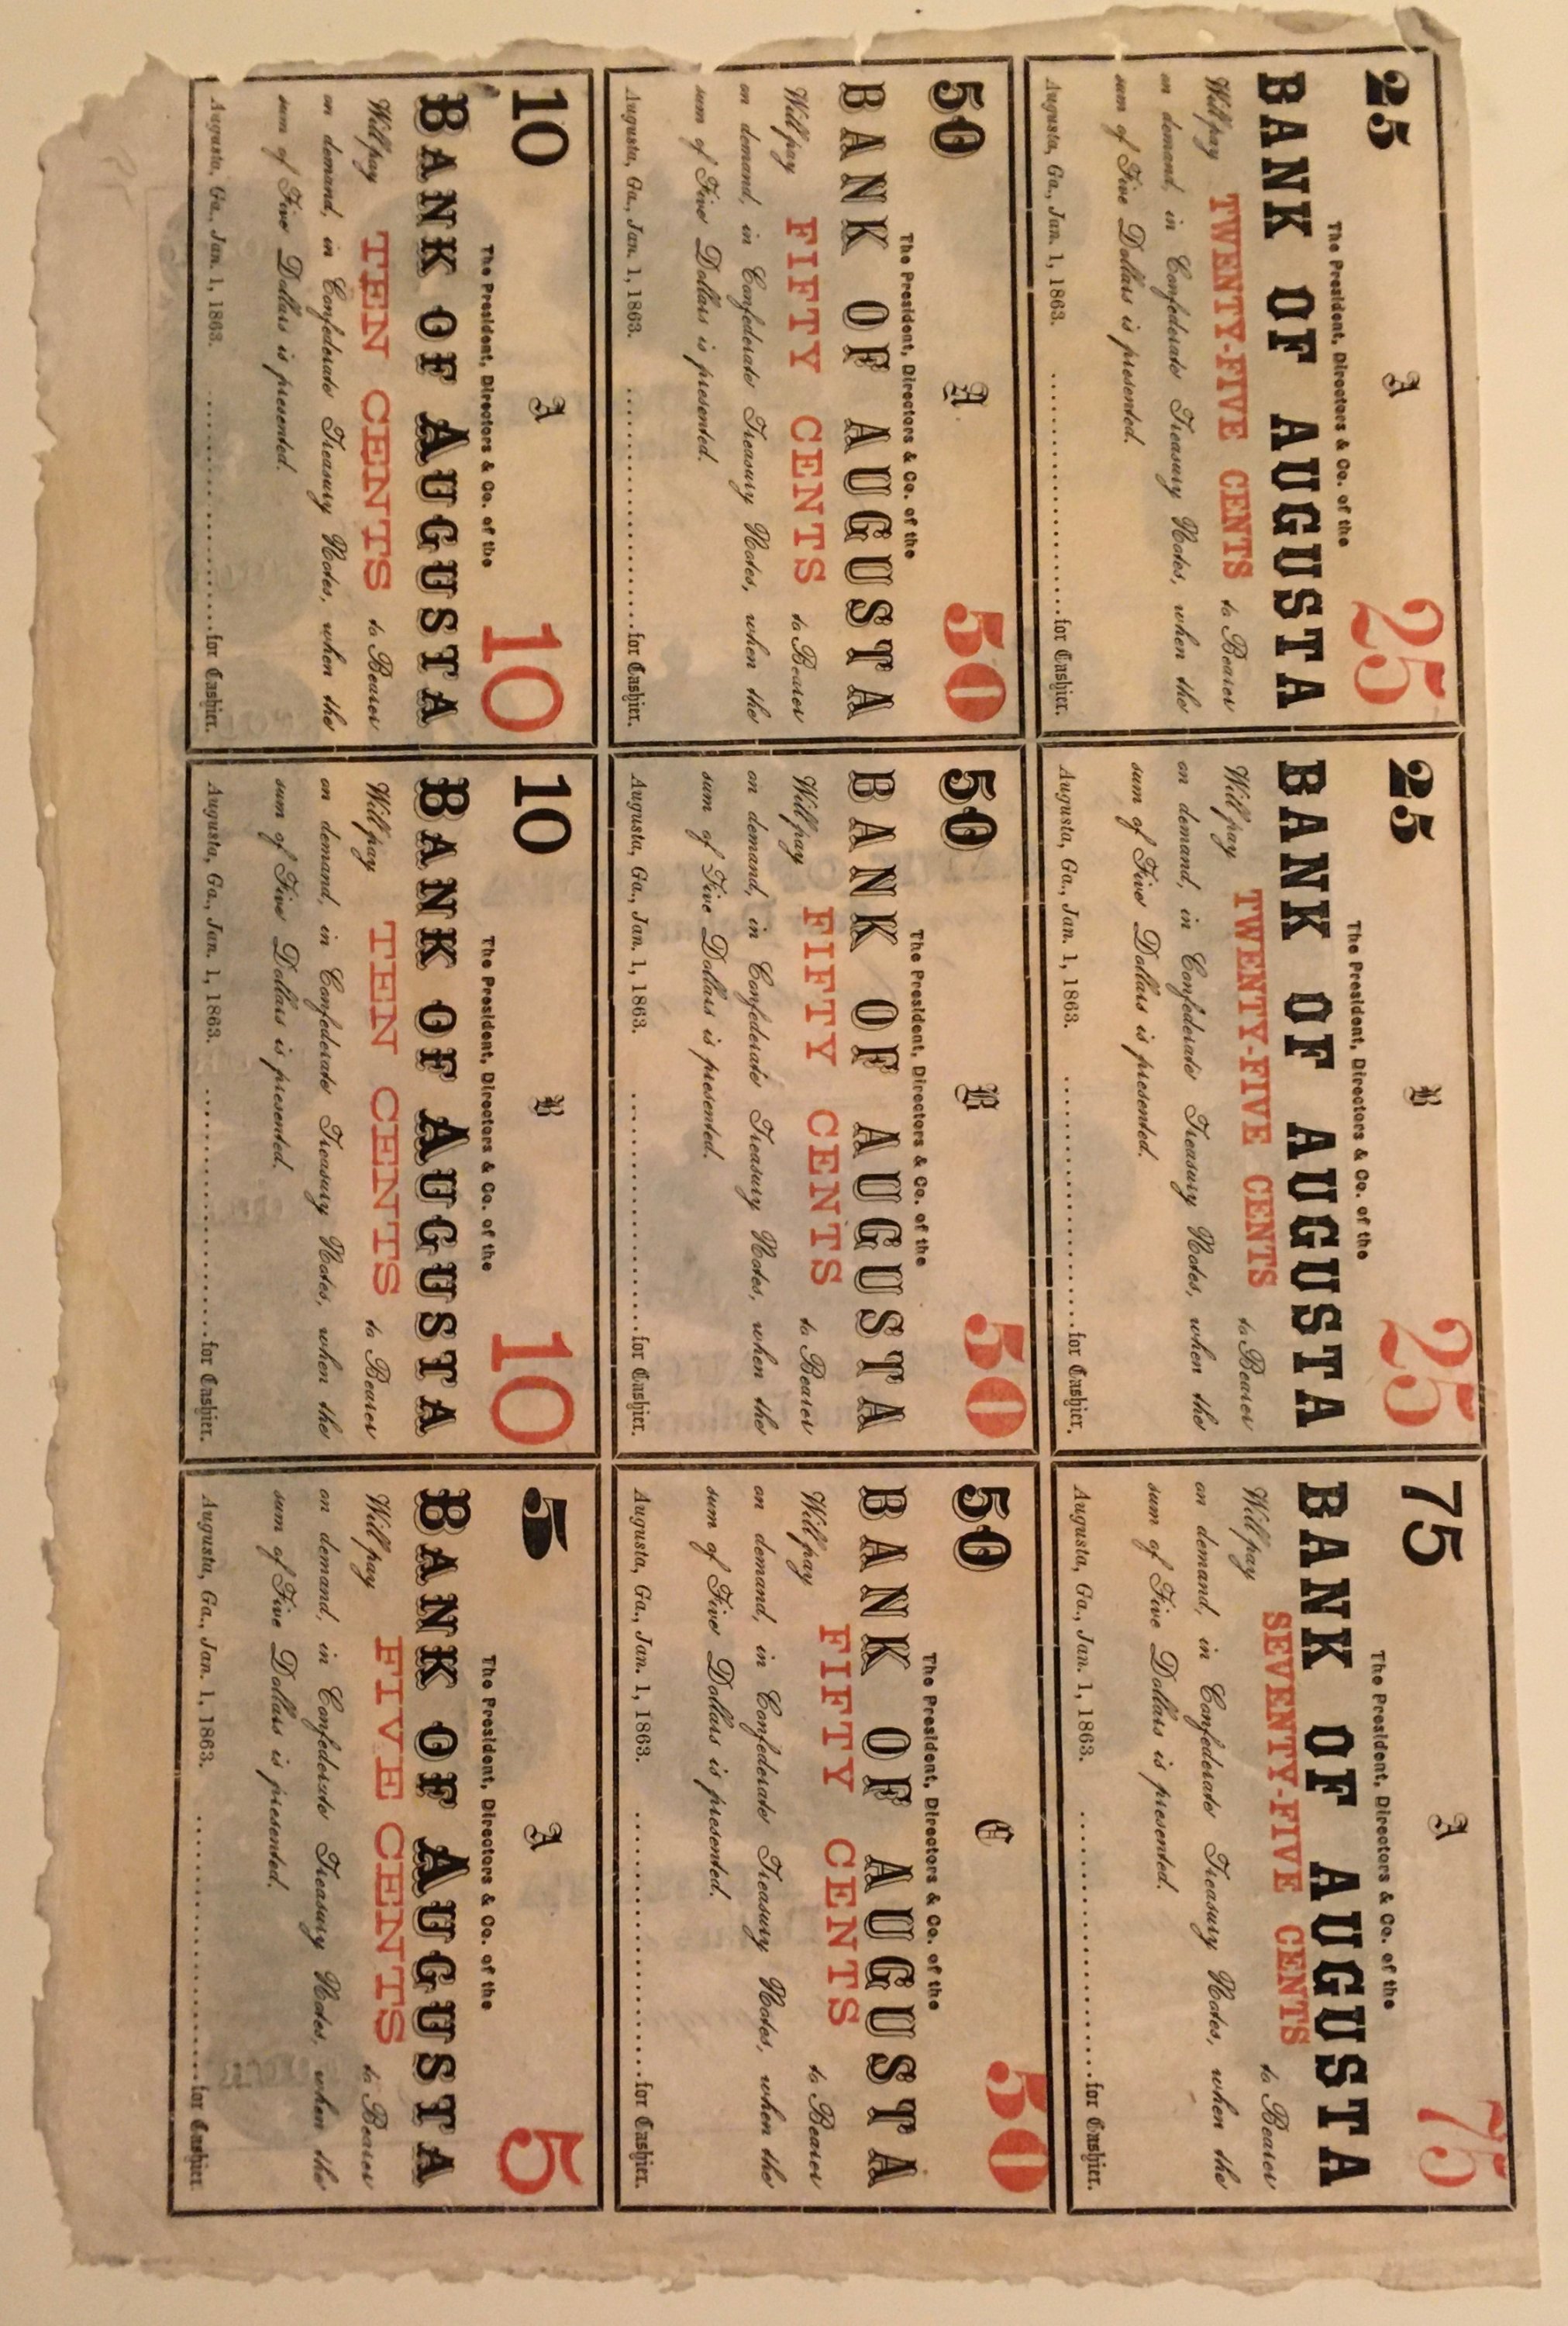 25 A 25
The President, Directors & Co. of the
BANK OF AUGUSTA
Will pay TWENTY-FIVE CENTS to Bearer
on demand, in Confederate Treasury Notes, when the
sum of Five Dollars is presented.
Augusta, Ga., Jan. 1, 1863. for Cashier.
25 B 25
The President, Directors & Co. of the
BANK OF AUGUSTA
Will pay TWENTY-FIVE CENTS to Bearer
on demand, in Confederate Treasury Notes, when the
sum of Five Dollars is presented.
Augusta, Ga., Jan. 1, 1863. for Cashier.
75 A 75
The President, Directors & Co. of the
BANK OF AUGUSTA
Will pay SEVENTY-FIVE CENTS to Bearer
on demand, in Confederate Treasury Notes, when the
sum of Five Dollars is presented.
Augusta, Ga., Jan. 1, 1863. for Cashier.
50 A 50
The President, Directors & Co. of the
BANK OF AUGUSTA
Will pay FIFTY CENTS to Bearer
on demand, in Confederate Treasury Notes, when the
sum of Five Dollars is presented.
Augusta, Ga., Jan. 1, 1863. for Cashier.
50 B 50
The President, Directors & Co. of the
BANK OF AUGUSTA
Will pay FIFTY CENTS to Bearer
on demand, in Confederate Treasury Notes, when the
sum of Five Dollars is presented.
Augusta, Ga., Jan. 1, 1863. for Cashier.
50 C 50
The President, Directors & Co. of the
BANK OF AUGUSTA
Will pay FIFTY CENTS to Bearer
on demand, in Confederate Treasury Notes, when the
sum of Five Dollars is presented.
Augusta, Ga., Jan. 1, 1863. for Cashier.
10 A 10
The President, Directors & Co. of the
BANK OF AUGUSTA
Will pay TEN CENTS to Bearer
on demand, in Confederate Treasury Notes, when the
sum of Five Dollars is presented.
Augusta, Ga., Jan. 1, 1863. for Cashier.
10 B 10
The President, Directors & Co. of the
BANK OF AUGUSTA
Will pay TEN CENTS to Bearer
on demand, in Confederate Treasury Notes, when the
sum of Five Dollars is presented.
Augusta, Ga., Jan. 1, 1863. for Cashier.
5 A 5
The President, Directors & Co. of the
BANK OF AUGUSTA
Will pay FIVE CENTS to Bearer
on demand, in Confederate Treasury Notes, when the
sum of Five Dollars is presented.
Augusta, Ga., Jan. 1, 1863. for Cashier